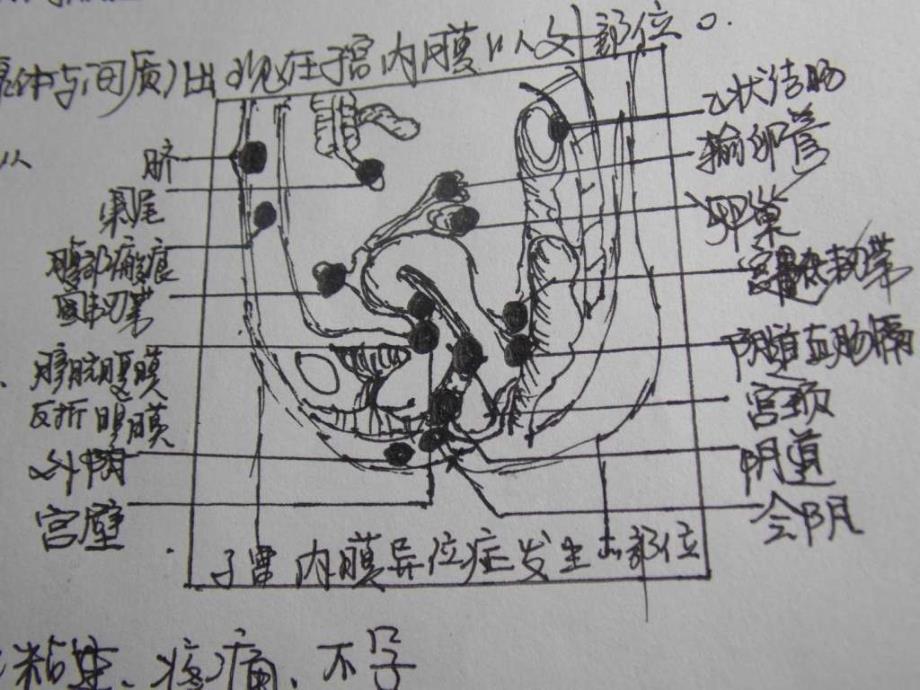 体与间质)出现在子宫内膜以外部位。
脐
阑尾
腹部瘢痕
圆韧带
膀胱腹膜
反折腹膜
外阴
宫壁
乙状结肠
输卵管
卵巢
宫骶韧带
阴道直肠隔
宫颈
阴道
会阴
子宫内膜异位症发生的部位
粘连、疼痛、不孕